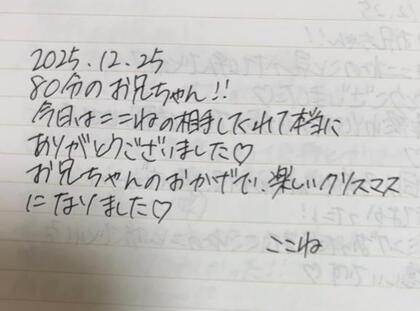 2025.12.25
80分のお兄ちゃん!!
今日はここねの相手してくれて本当に
ありがとうございました♡
お兄ちゃんのおかげで、楽しいクリスマス
になりました♡
ここね